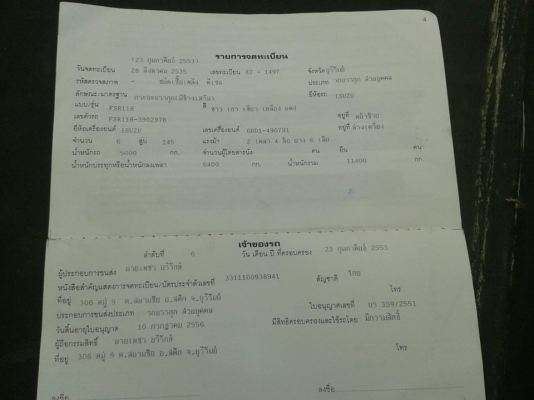 4
รายการจดทะเบียน
(23 กุมภาพันธ์ 2553)
วันจดทะเบียน 28 สิงหาคม 2535 เลขทะเบียน 82 - 1497 จังหวัด บุรีรัมย์
รหัสตรวจสภาพ - ชนิดเชื้อเพลิง ดีเซล ประเภท รถบรรทุก ส่วนบุคคล
ลักษณะ/มาตรฐาน ยี่ห้อรถ ISUZU
แบบ/รุ่น FSR11X สี ขาว เทา เขียว เหลือง แดง
เลขตัวรถ FSR11H-3902976 อยู่ที่
ยี่ห้อเครื่องยนต์ ISUZU เลขเครื่องยนต์ 6BD1-490791 อยู่ที่
จำนวน 6 สูบ 145 แรงม้า 2 เพลา 4 ล้อ ยาง 6 เส้น
น้ำหนักรถ 5000 กก. จำนวนผู้โดยสารนั่ง คน ยืน คน
น้ำหนักบรรทุกหรือน้ำหนักลงเพลา 6400 กก. น้ำหนักรวม 11400 กก.
เจ้าของรถ
ลำดับที่ 6 วัน เดือน ปี ที่ครอบครอง 23 กุมภาพันธ์ 2553
ผู้ประกอบการขนส่ง
หนังสือสำคัญแสดงการจดทะเบียน/บัตรประจำตัวเลขที่ 3311100938941 สัญชาติ ไทย
ที่อยู่ 306 หมู่ 9 ต.สนามชัย อ.สตึก จ.บุรีรัมย์ โทร
ประกอบการขนส่งประเภท รถบรรทุก ส่วนบุคคล ใบอนุญาตเลขที่ บร 359/2551
วันสิ้นอายุใบอนุญาต 10 กรกฎาคม 2556 มีสิทธิครอบครองและใช้รถโดย มีกรรมสิทธิ์
ผู้ถือกรรมสิทธิ์
ที่อยู่ 306 หมู่ 9 ต.สนามชัย อ.สตึก จ.บุรีรัมย์ โทร
ลงชื่อ ลงชื่อ